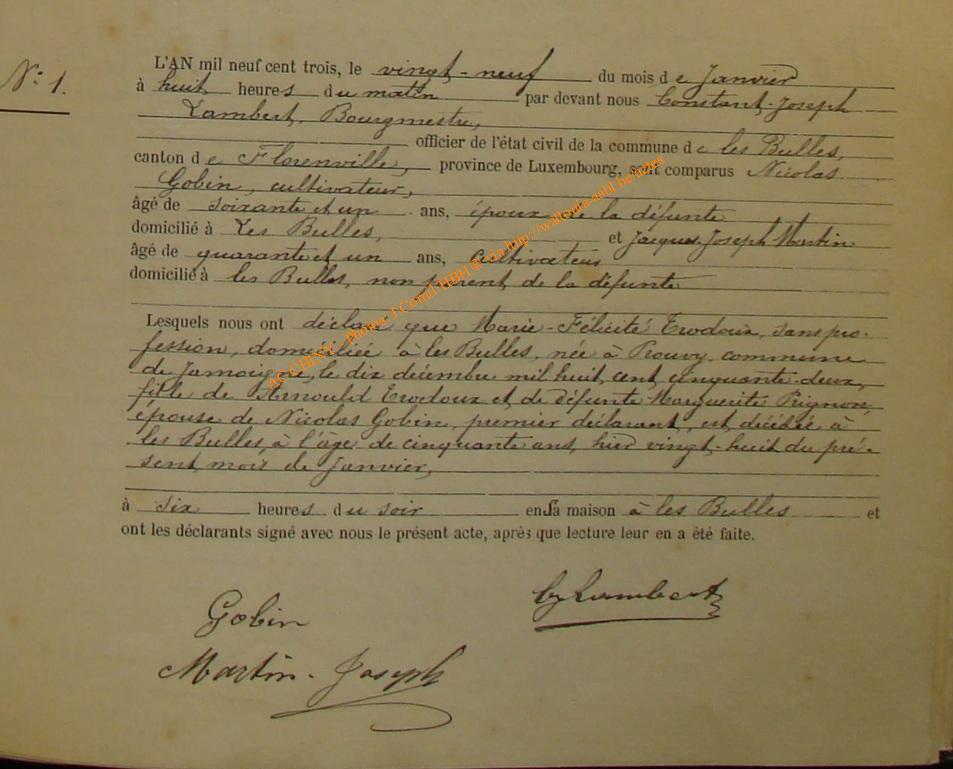 N° 1.
L'AN mil neuf cent trois, le vingt-neuf du mois de Janvier
à huit heures du matin par devant nous Constant-Joseph
Lambert, Bourgmestre,
officier de l'état civil de la commune de les Bulles,
canton de Florenville, province de Luxembourg, sont comparus Nicolas
Gobin, cultivateur,
âgé de soixante et un ans, époux de la défunte
domicilié à Les Bulles, et Jacques Joseph Martin
âgé de quarante et un ans, cultivateur
domicilié à les Bulles, non parent de la défunte
Lesquels nous ont déclaré que Marie-Félicité Erodoux, sans pro-
fession, domiciliée à les Bulles, née à Prouvy, commune
de Jamoigne, le dix décembre mil huit cent cinquante-deux,
fille de Arnould Erodoux et de défunte Marguerite Pignon,
épouse de Nicolas Gobin, premier déclarant, est décédée à
les Bulles, à l'âge de cinquante ans, hier vingt-huit du pré-
sent mois de Janvier,
à six heures du soir en sa maison à les Bulles et
ont les déclarants signé avec nous le présent acte, après que lecture leur en a été faite.
Gobin
CJ Lambert
Martin-Joseph